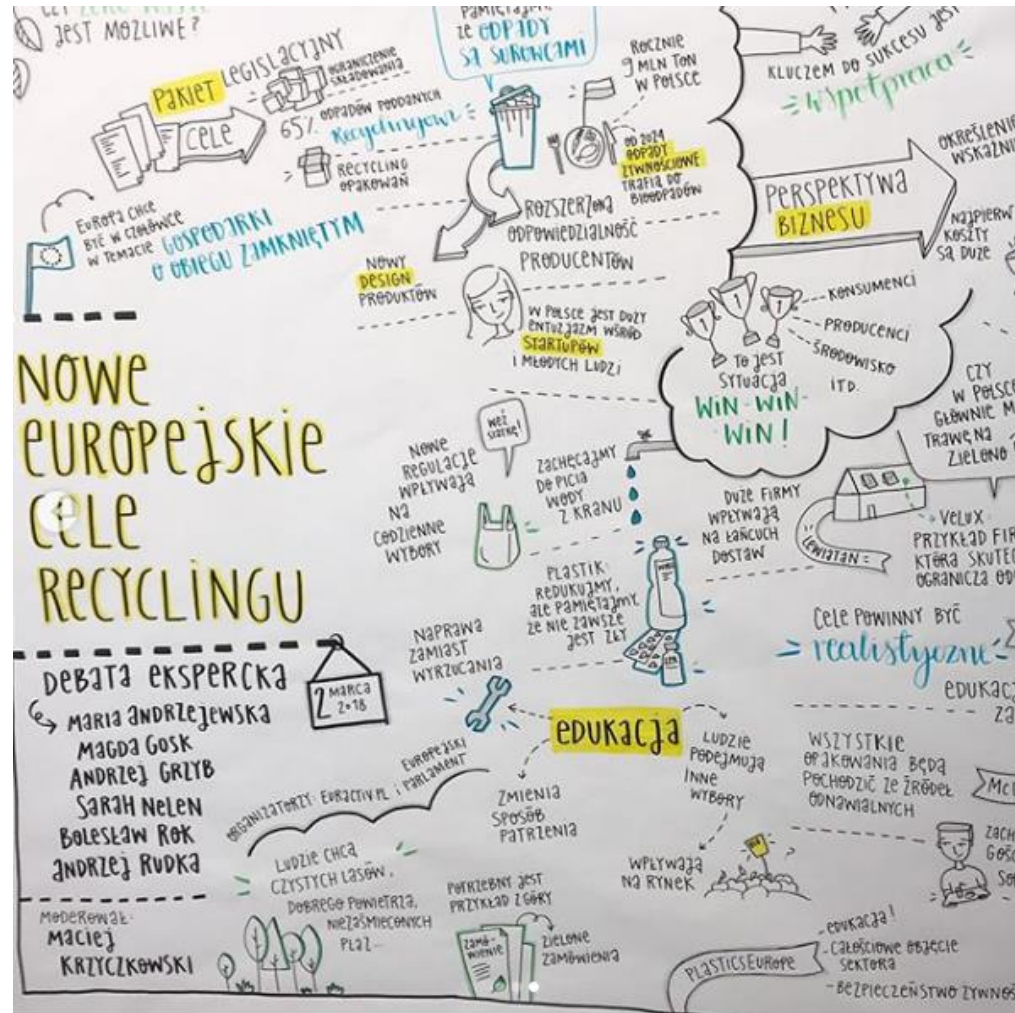 JEST MOŻLIWE?
PAKIET LEGISLACYJNY
CELE
OGRANICZENIE
SKŁADOWANIA
65% ODPADÓW PODDANYCH
Recyclingowi
RECYCLING
OPAKOWAŃ
EUROPA CHCE
BYĆ W CZOŁÓWCE
W TEMACIE GOSPODARKI
O OBIEGU ZAMKNIĘTYM
PAMIĘTAJMY,
ŻE ODPADY
SĄ SUROWCAMI
ROCZNIE
9 MLN TON
W POLSCE
OD 2024
ODPADY
ŻYWNOŚCIOWE
TRAFIĄ DO
BIOODPADÓW
ROZSZERZONA
ODPOWIEDZIALNOŚĆ
PRODUCENTÓW
NOWY
DESIGN
PRODUKTÓW
W POLSCE JEST DUŻY
ENTUZJAZM WŚRÓD
STARTUPÓW
I MŁODYCH LUDZI
KLUCZEM DO SUKCESU JEST
współpraca
PERSPEKTYWA
BIZNESU
OKREŚLENIE
NAJPIERW
KOSZTY
SĄ DUŻE
1
1
1
KONSUMENCI
PRODUCENCI
ŚRODOWISKO
ITD.
TO JEST
SYTUACJA
WIN-WIN-
WIN!
CZY
W POLSCE
GŁÓWNIE
TRAWĘ NA
ZIELONO
NOWE
EUROPEJSKIE
CELE
RECYCLINGU
NOWE
REGULACJE
WPŁYWAJĄ
NA
CODZIENNE
WYBORY
WEŹ
SIATKĘ!
ZACHĘCAJMY
DO PICIA
WODY
Z KRANU
DUŻE FIRMY
WPŁYWAJĄ
NA ŁAŃCUCH
DOSTAW
LEWIATAN
VELUX
PRZYKŁAD
KTÓRA
OGRANICZA
PLASTIK
REDUKUJMY,
ALE PAMIĘTAJMY,
ŻE NIE ZAWSZE
JEST ZŁY
NAPRAWA
ZAMIAST
WYRZUCANIA
CELE POWINNY BYĆ
realistyczne
DEBATA EKSPERCKA
2 MARCA
2018
MARIA ANDRZEJEWSKA
MAGDA GOSK
ANDRZEJ GRZYB
SARAH NELEN
BOLESŁAW ROK
ANDRZEJ RUDKA
MODEROWAŁ:
MACIEJ
KRZYCZKOWSKI
ORGANIZATORZY: EURACTIV.PL i EUROPEJSKI
PARLAMENT
EDUKACJA
ZMIENIA
SPOSÓB
PATRZENIA
LUDZIE
PODEJMUJĄ
INNE
WYBORY
WPŁYWAJĄ
NA RYNEK
WSZYSTKIE
OPAKOWANIA BĘDĄ
POCHODZIĆ ZE ŹRÓDEŁ
ODNAWIALNYCH
LUDZIE CHCĄ
CZYSTYCH LASÓW,
DOBREGO POWIETRZA,
NIEZAŚMIECONYCH
PLAŻ...
POTRZEBNY JEST
PRZYKŁAD Z GÓRY
ZAMÓ-
WIENIE
ZIELONE
ZAMÓWIENIA
PLASTICSEUROPE
- EDUKACJA!
- CAŁOŚCIOWE OBJĘCIE
SEKTORA
- BEZPIECZEŃSTWO